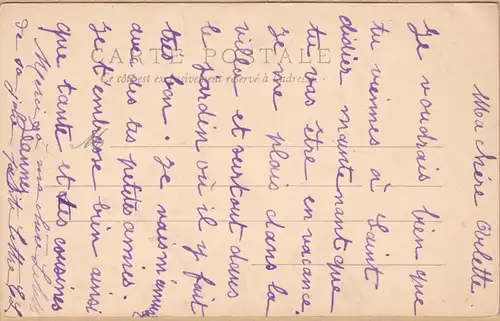 CARTE POSTALE
Ce côté est exclusivement réservé à l'adresse
Ma chère Arlette
Je voudrais bien que
tu viennes à Saint
didier maintenant que
tu vas être en vacance
Je me plais dans la
villa et surtout dans
le jardin où il y fait
très bon. Je vais m'amuser
avec des tes petites amies.
Je t'embrasse bien ainsi
que tante et tes cousines
Jeannes
Merci à ma chère
de sa jolie petite lettre